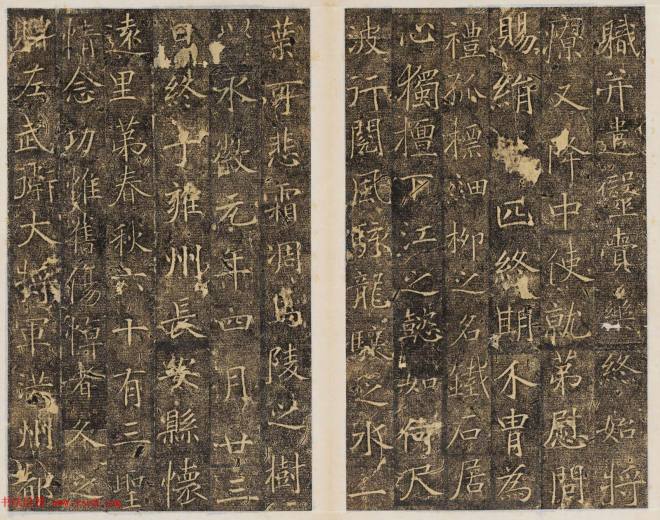 職并遣毉賷藥終始將
療又降中使就第慰問
賜絹匹終期不胄為
禮孤標細柳之名鐵石居
心獨擅下江之懿如何尺
波行閱風騖龍驤之水一
葉可悲霜凋馬陵之樹
以永徽元年四月廿三
日終于雍州長安縣懷
遠里第春秋六十有三聖
情念功惟舊傷悼者久之
贈左武衛大將軍洪州都